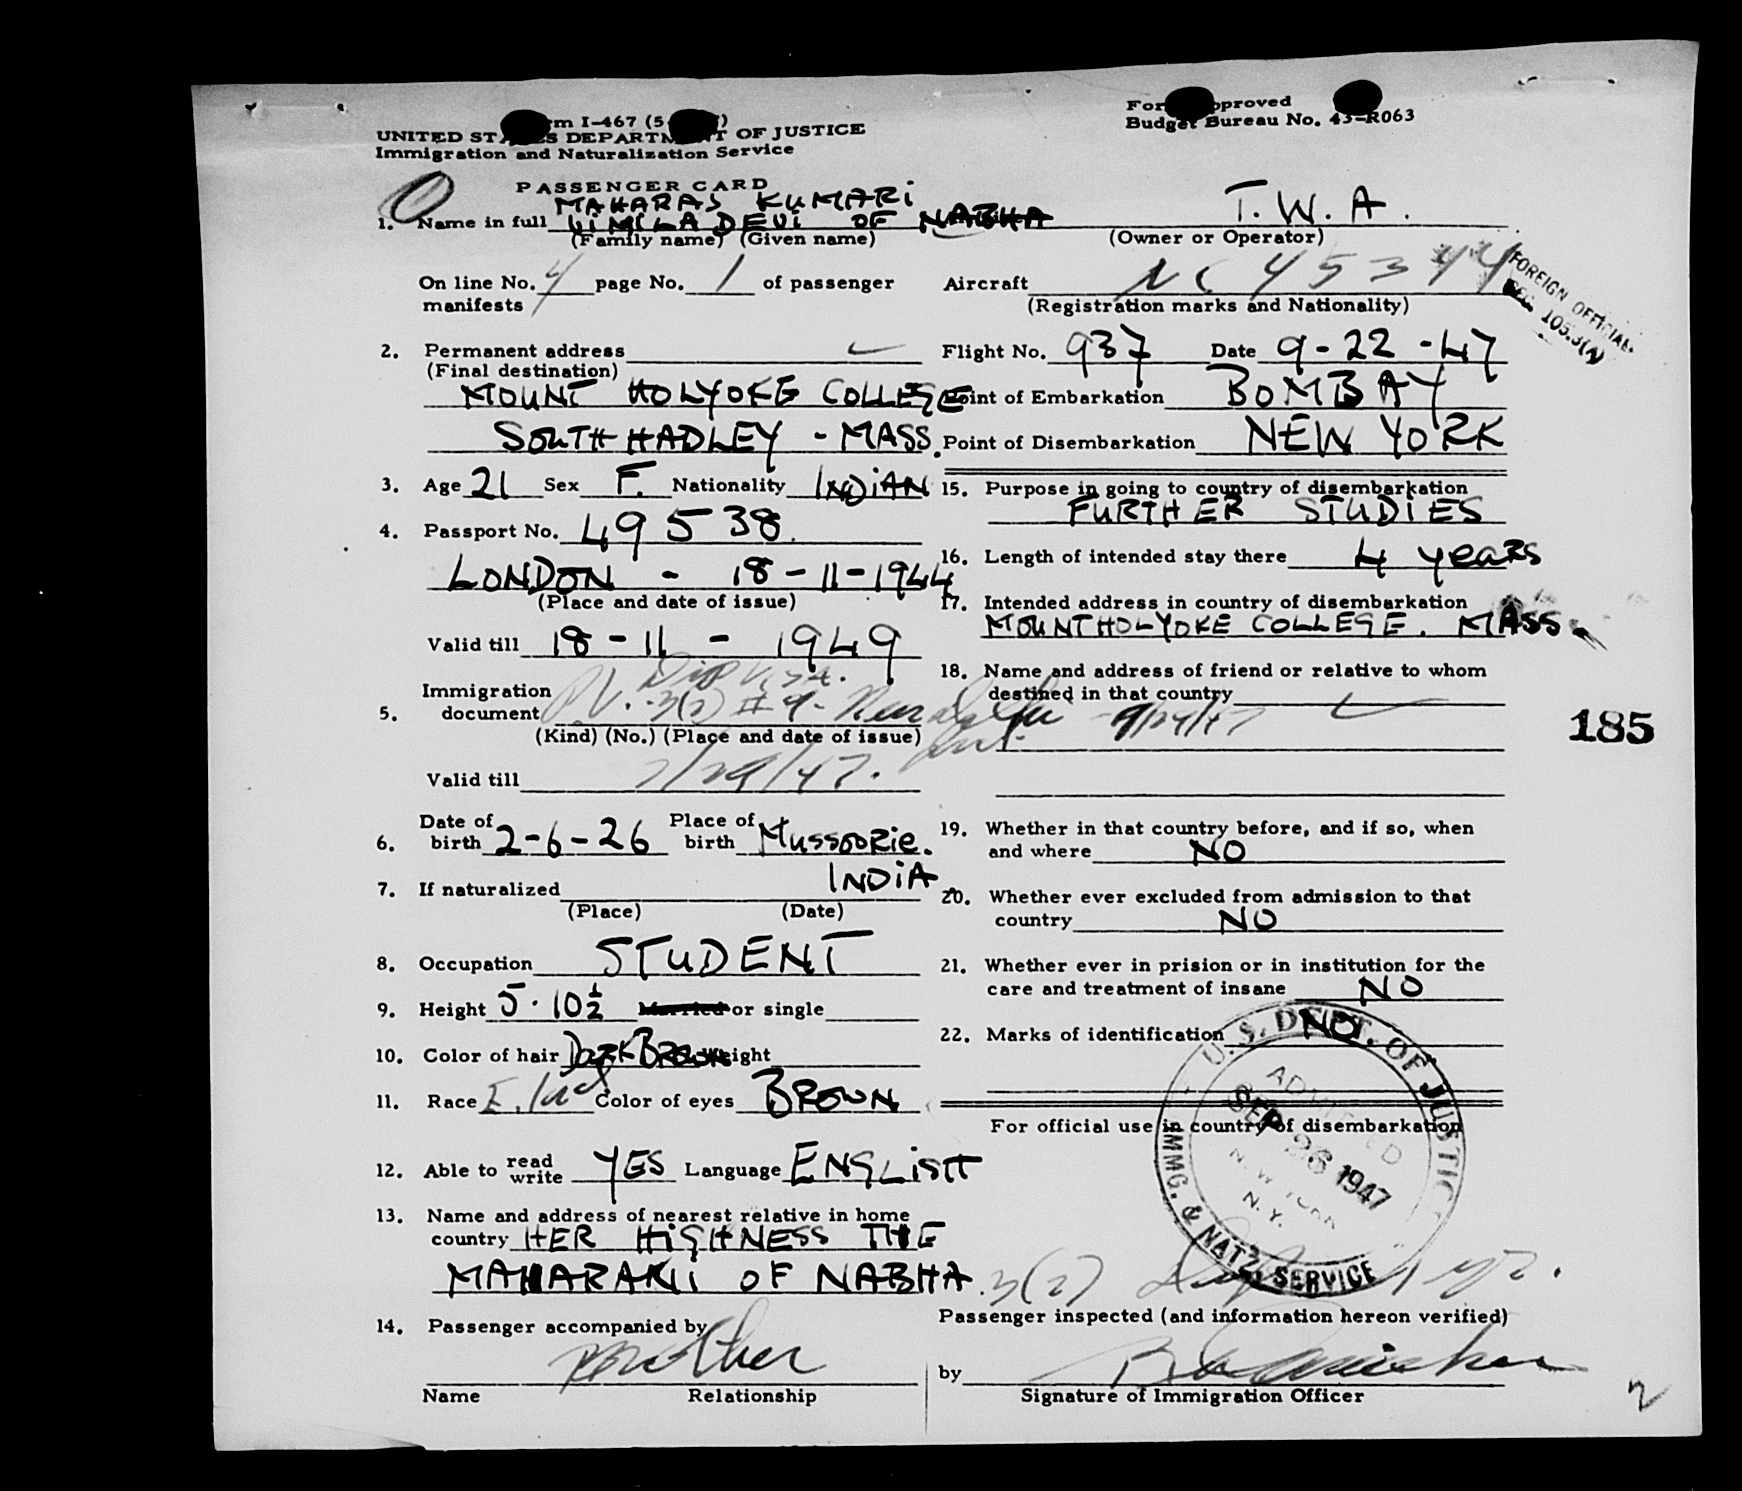 Form I-467 (5
UNITED STATES DEPARTMENT OF JUSTICE
Immigration and Naturalization Service
Form Approved
Budget Bureau No. 43-R063
PASSENGER CARD
MAHARAJ KUMARi
1. Name in full ViMLA DEVi OF NABHA
(Family name) (Given name)
T.W.A.
(Owner or Operator)
On line No. 4 page No. 1 of passenger
manifests
Aircraft NC 45344
(Registration marks and Nationality)
FOREIGN OFFICIAL
SEC. 105.3(A)
2. Permanent address
(Final destination)
MOUNT HOLYOKE COLLEGE
SOUTH HADLEY - MASS.
Flight No. 937 Date 9-22-47
Point of Embarkation BOMBAY
Point of Disembarkation NEW YORK
3. Age 21 Sex F. Nationality INDiAN
4. Passport No. 49538.
LONDON - 18-11-1944
(Place and date of issue)
Valid till 18-11-1949
Dip Visa.
5. Immigration
document 3(2) #9- New Delhi 9/29/47
(Kind) (No.) (Place and date of issue)
Valid till /29/47.
6. Date of
birth 2-6-26 Place of
birth MUSSOORie.
INDiA
7. If naturalized
(Place) (Date)
8. Occupation STUDENT
9. Height 5.10½ Married or single
10. Color of hair DARK BROWN Weight
11. Race E. Ind Color of eyes BROWN
12. Able to read
write YES Language ENGLiSH
13. Name and address of nearest relative in home
country HER HiGHNESS THE
MAHARANi OF NABHA
14. Passenger accompanied by
mother
Name Relationship
15. Purpose in going to country of disembarkation
FURTHER STUDIES
16. Length of intended stay there 4 yeaRs
17. Intended address in country of disembarkation
MOUNT HOLYOKE COLLEGE. MASS.
18. Name and address of friend or relative to whom
destined in that country
185
19. Whether in that country before, and if so, when
and where NO
20. Whether ever excluded from admission to that
country NO
21. Whether ever in prision or in institution for the
care and treatment of insane NO
22. Marks of identification NO
For official use in country of disembarkation
U.S. DEPT. OF JUSTICE
ADMITTED
SEP 26 1947
NEW YORK
N.Y.
IMMG. & NATZ. SERVICE
3(2)
Passenger inspected (and information hereon verified)
by
Signature of Immigration Officer
2